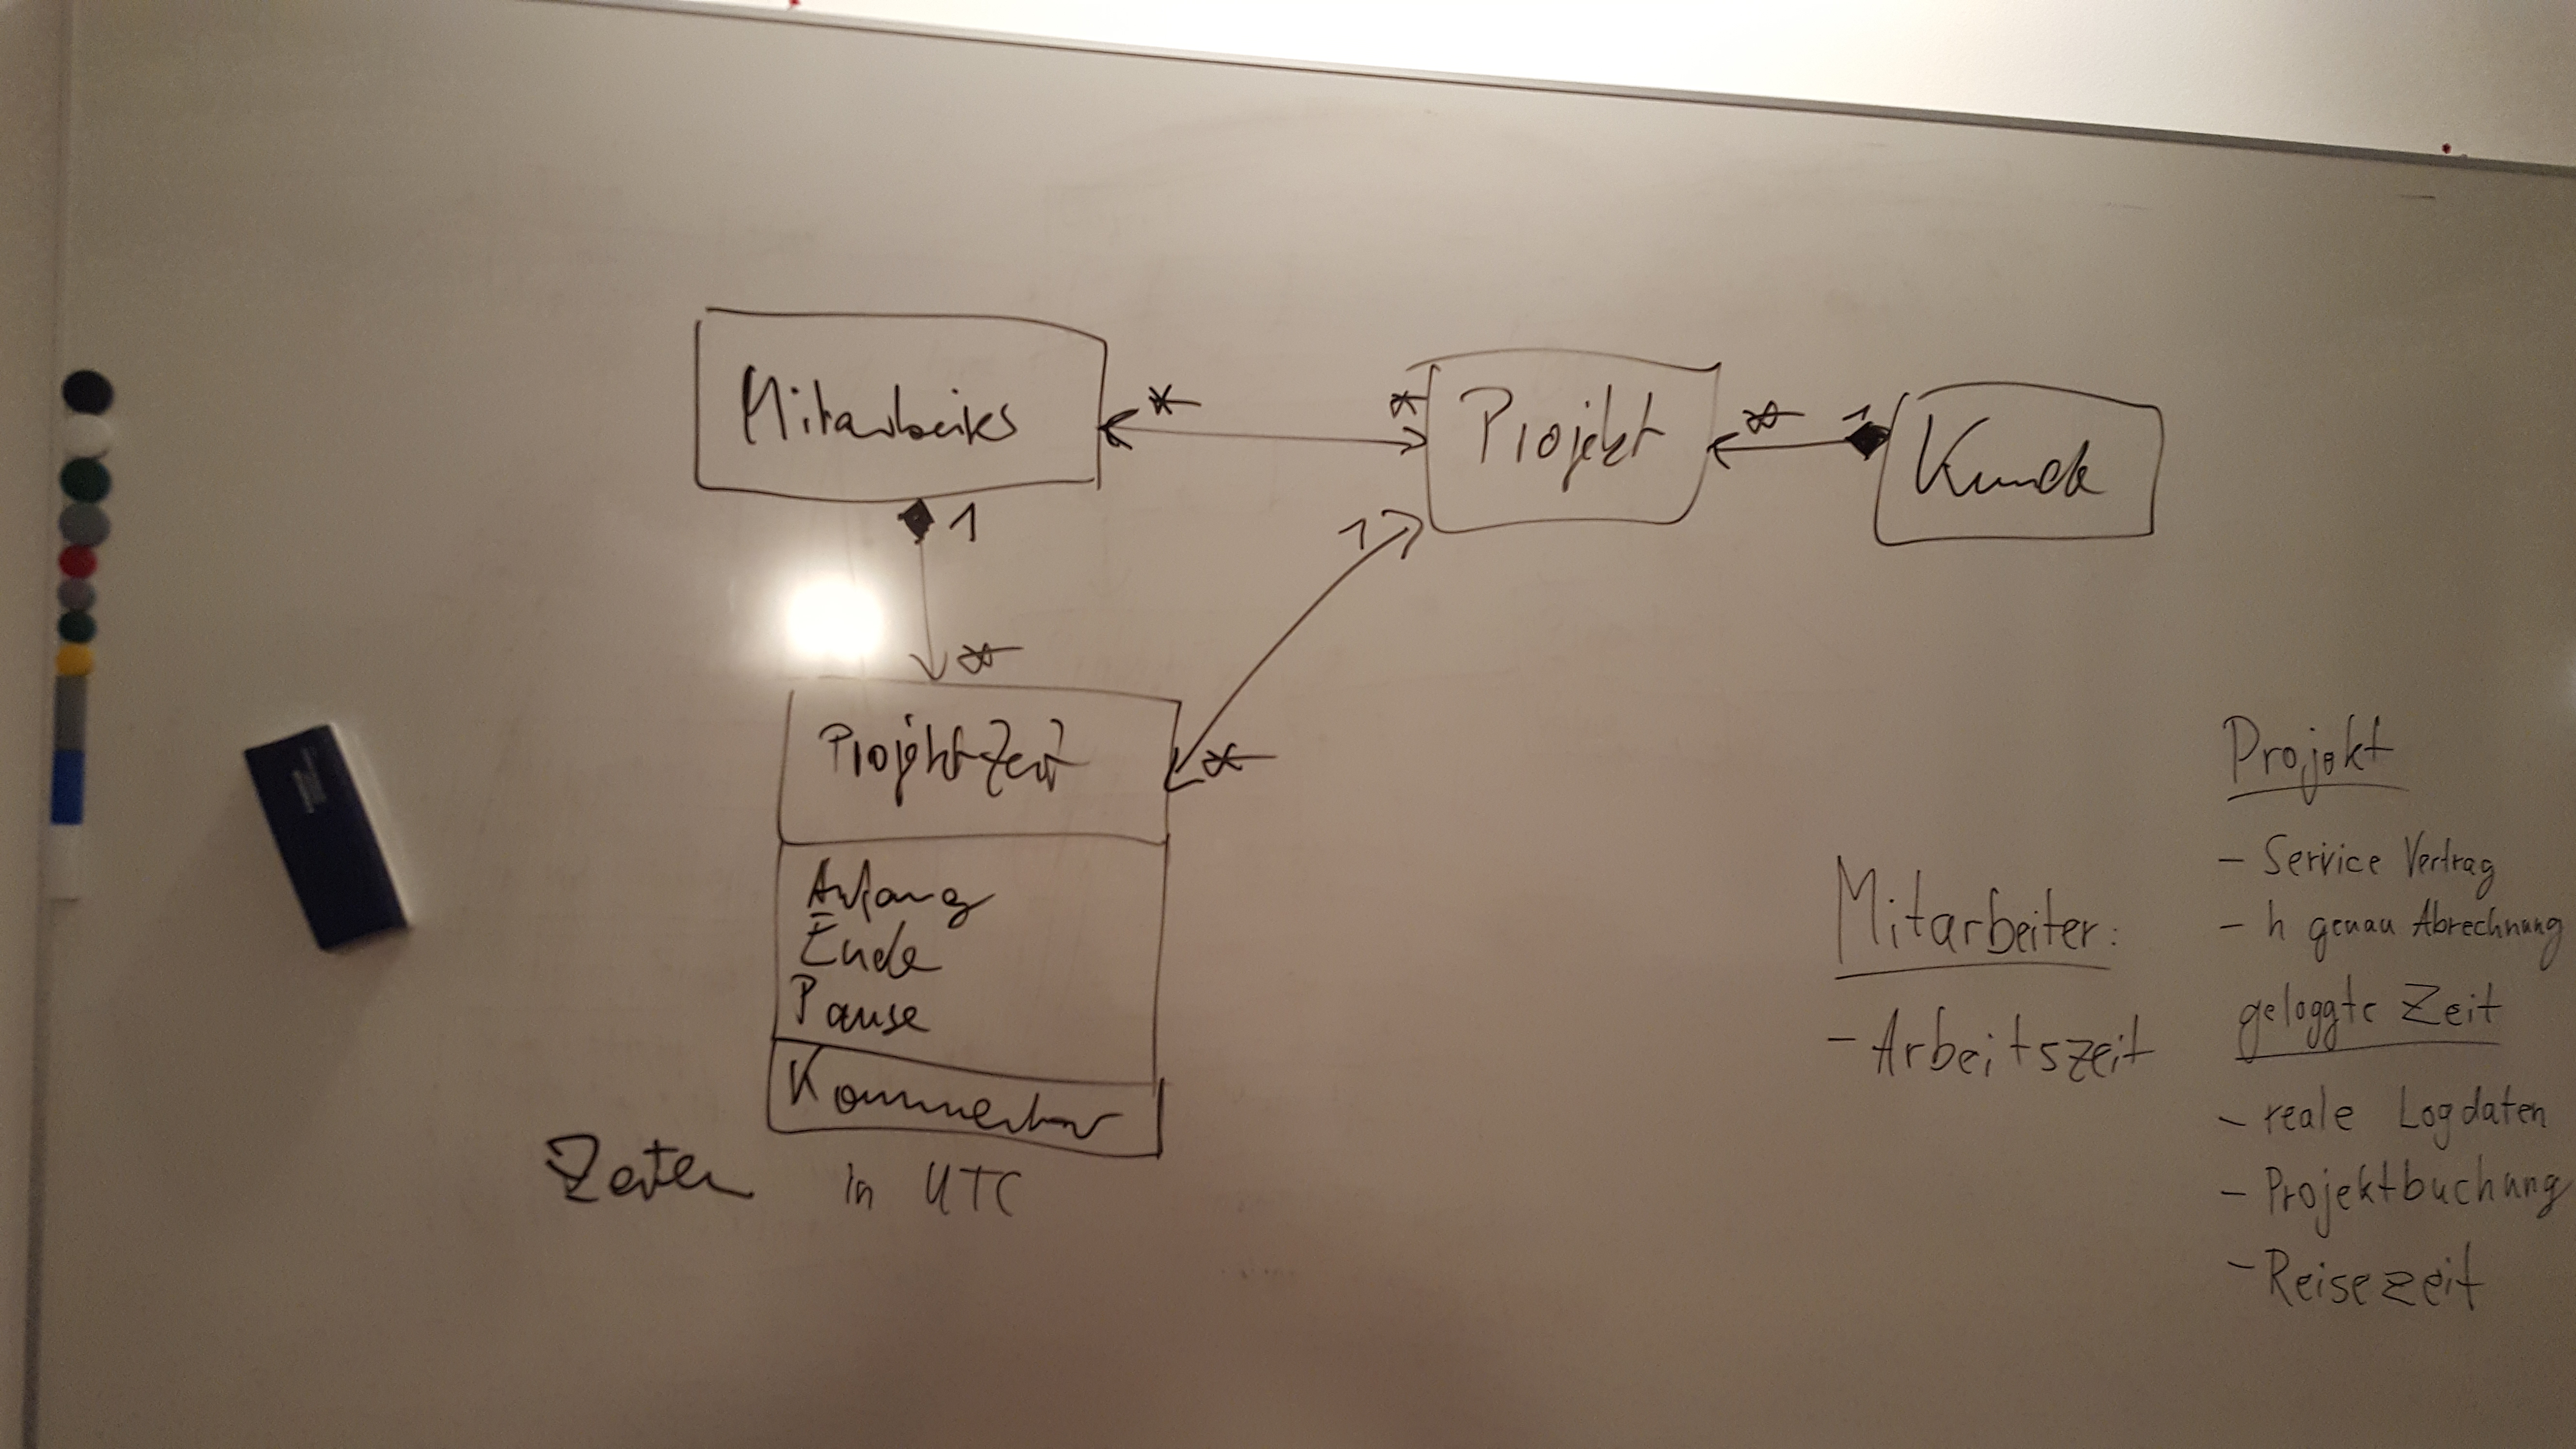 Mitarbeiter
*
*
Projekt
*
1
Kunde
1
*
1
*
Projektzeit
Anfang
Ende
Pause
Kommentar
Zeiten in UTC
Mitarbeiter:
- Arbeitszeit
Projekt
- Service Vertrag
- h genau Abrechnung
geloggte Zeit
- reale Logdaten
- Projektbuchung
- Reisezeit